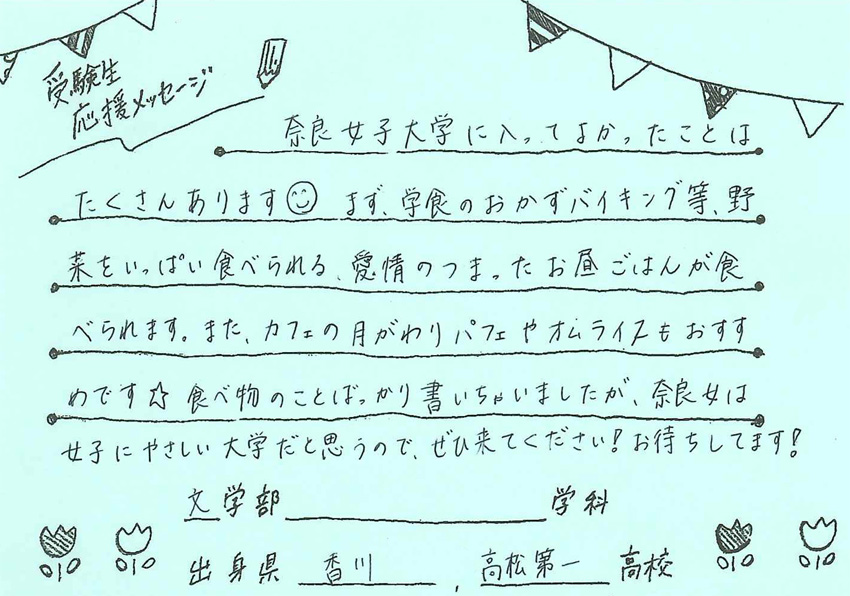 受験生
応援メッセージ
奈良女子大学に入ってよかったことは
たくさんあります まず、学食のおかずバイキング等、野
菜をいっぱい食べられる、愛情のつまったお昼ごはんが食
べられます。また、カフェの月がわりパフェやオムライスもおすす
めです☆ 食べ物のことばっかり書いちゃいましたが、奈良女は
女子にやさしい大学だと思うので、ぜひ来てください!お待ちしてます!
文学部 学科
出身県 香川 , 高松第一 高校